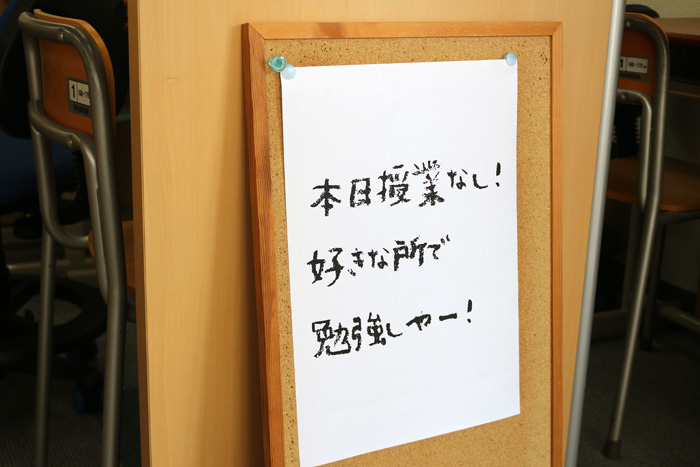 本日授業なし!
好きな所で
勉強しやー!
1
1